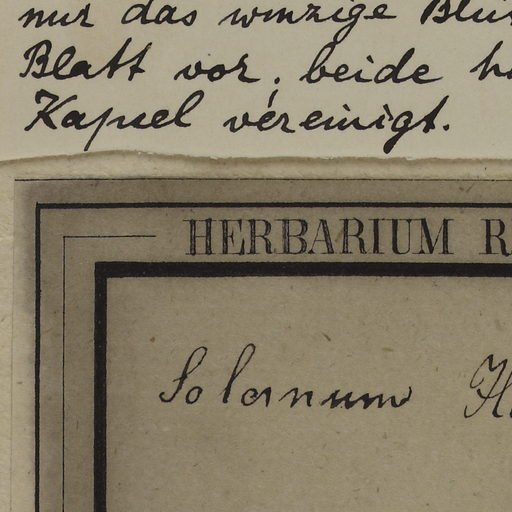 nur das winzige Blü
Blatt vor, beide h
Kapsel vereinigt.
HERBARIUM R
Solanum H